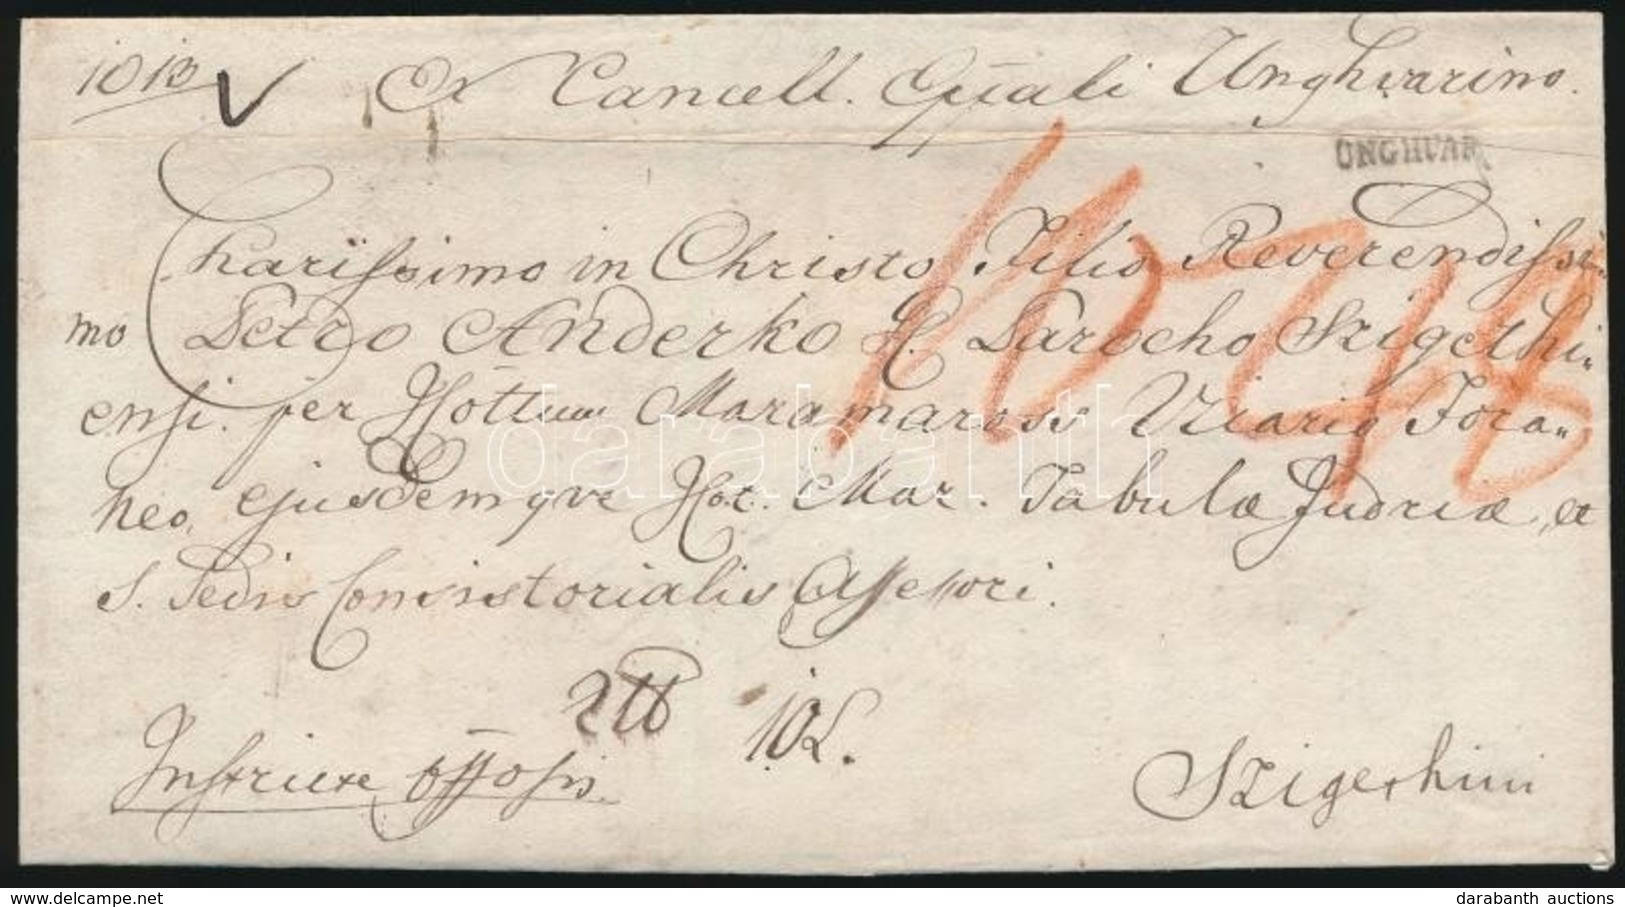 1013 Ex Cancell. Eppali Unghvarino.
UNGHVAR
Charissimo in Christo Filio Reverendissi-
mo Petro Anderko G. C. Parocho Szigethi-
ensi. per Ittottum Maramaross V. Viario Fora-
neo, ejusdemqve Itot. Mar. Tabulæ Judriæ, et
S. Sedis Consistorialis Assessori.
10L.
Szigethini
darabanth
darabanth auctions